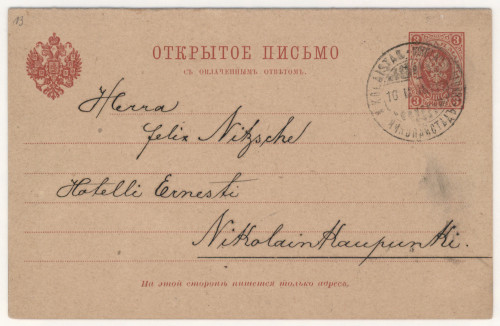 13
ОТКРЫТОЕ ПИСЬМО
СЪ ОПЛАЧЕННЫМЪ ОТВѢТОМЪ.
3 3
3 3
10
Herra
Felix Nitzsche
Hotelli Ernesti
Nikolainkaupunki.
На этой сторонѣ пишется только адресъ.